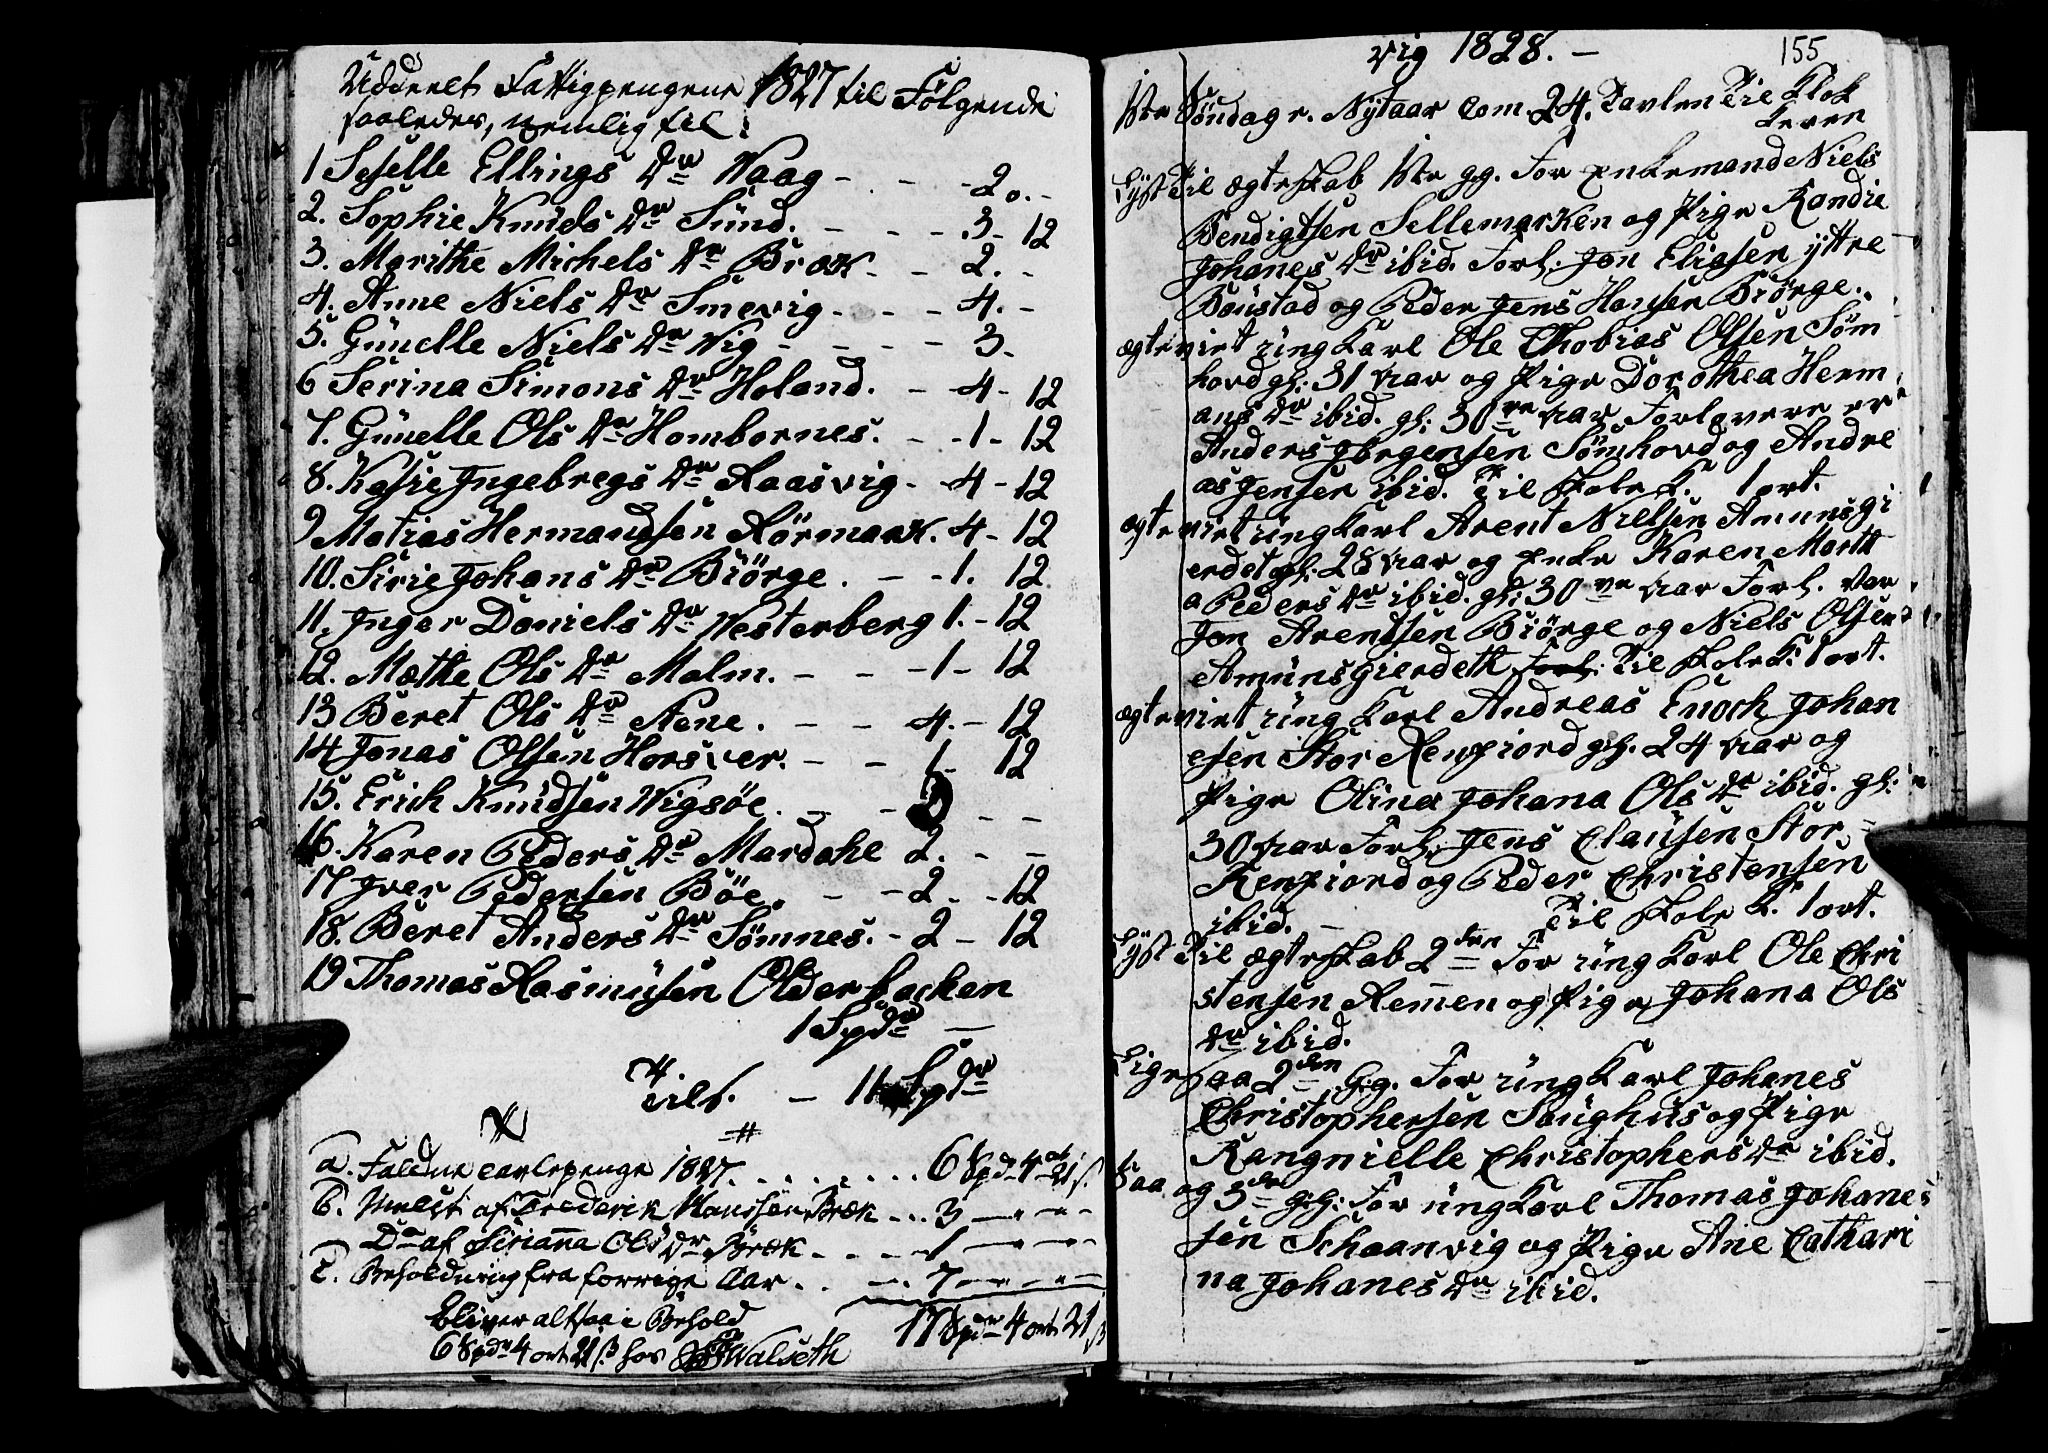 Uddeelt Fattigpengene 1827 til Følgende
saaledes, nemlig til
1 Seselle Ellings Dr Vaag - - - 2 . -
2. Sophie Knüds Dr Sünd. - - - 3 - 12
3. Marithe Michels Dr Bræk - - 2 . -
4. Anne Niels Dr Smevig - - - 4. -
5. Günelle Niels Dr Vig - - - - 3. -
6 Serina Simons Dr Holand. - 4 - 12
7. Günelle Ols Dr Hombornes. - - 1 - 12
8. Kasie Ingebregs Dr Raasvig - 4 - 12
9 Matias Hermandsen Rörmark. 4 - 12
10. Sirie Johans Dr Biörge. - - 1. 12
11. Inger Daniels Dr Vesterberg 1. - 12
12. Mæthe Ols Dr Malm. - - - 1 - 12
13 Beret Ols Dr Stene. - - 4. - 12
14 Jonas Olsen Horsver. - - 1 - 12
15. Erich Knüdsen Vigsöe. - - 3 - -
16. Karen Peders Dr Mardahl 2. - -
17 Iver Pedersen Böe. - - 2 - - 12
18. Beret Anders Dr Sömnes. - 2 - 12
19 Thomas Rasmüsen Olderbacken
1 Spdr -
Tils. - 11 Spdr
a. Faldne tavlepenge 1827. . . . . . . . 6 Spd 4 ort 21 ß.
b. Mulct af Frederik Hanssen Bræk - - 3 - " - " -
- Do af Sirianna Ols Dr Bræk - - - - 1 - " - " -
c. Beholdning fra forrige Aar . . - - 7 - " - " -
bliver altsaa i Behold 17 Spdr 4 ort 21 ß
6 Spdr 4 ort 21 ß hos Walseth
Vig 1828. - 155
1ste Söndag e. Nytaar Com. 24. Tavlen Til Klok
keren
Lyst Til ægteskab 1ste gg. For Enkemand Niels
Bendigtsen Sellemarken og Pige Randie
Johanes Dr ibid. Forl: Jon Eliasen yttre
Boüstad og Peder Jens Hansen Biörge.
ægteviet üngkarl Ole Thobias Olsen Söm
hovd gl: 31 Aar og Pige Dorothea Herm
ans Dr ibid. gl: 30 ve Aar Forlovere er
Anders Jörgensen Sömhovd og Andre
as Jensen ibid. Til Skole K. 1 ort.
ægteviet üngkarl Arent Nielsen Amunsgi
erdet gl: 28 Aar og Enke Karen Marth
a Peders Dr ibid. gl: 30 ve Aar Forl. var
Jon Arentsen Biörge og Niels Olsen
Amünsgierdeth Forl: Til Skole K: 1 ort.
ægteviet üng Karl Andreas Enoch Johan
esen Stor Renfiord gl. 24 Aar og
Pige Olina Johana Ols Dr ibid. gl:
30 Aar Forl: Jens Claüsen Stor
Renfiord og Peder Christensen
ibid. - Til Skole K. 1 ort.
Lyst Til ægteskab 2den For üngkarl Ole Chri
stensen Remen og Pige Johana Ols
Dr ibid.
Ligesaa 2den Gg. For üngkarl Johanes
Christophersen Saüghüs og Pige
Rangnielle Christophers Dr ibid.
Saa og 3die gg: For üngkarl Thomas Johanes
sen Schaanvig og Pige Ane Cathari
na Johanes Dr ibid.